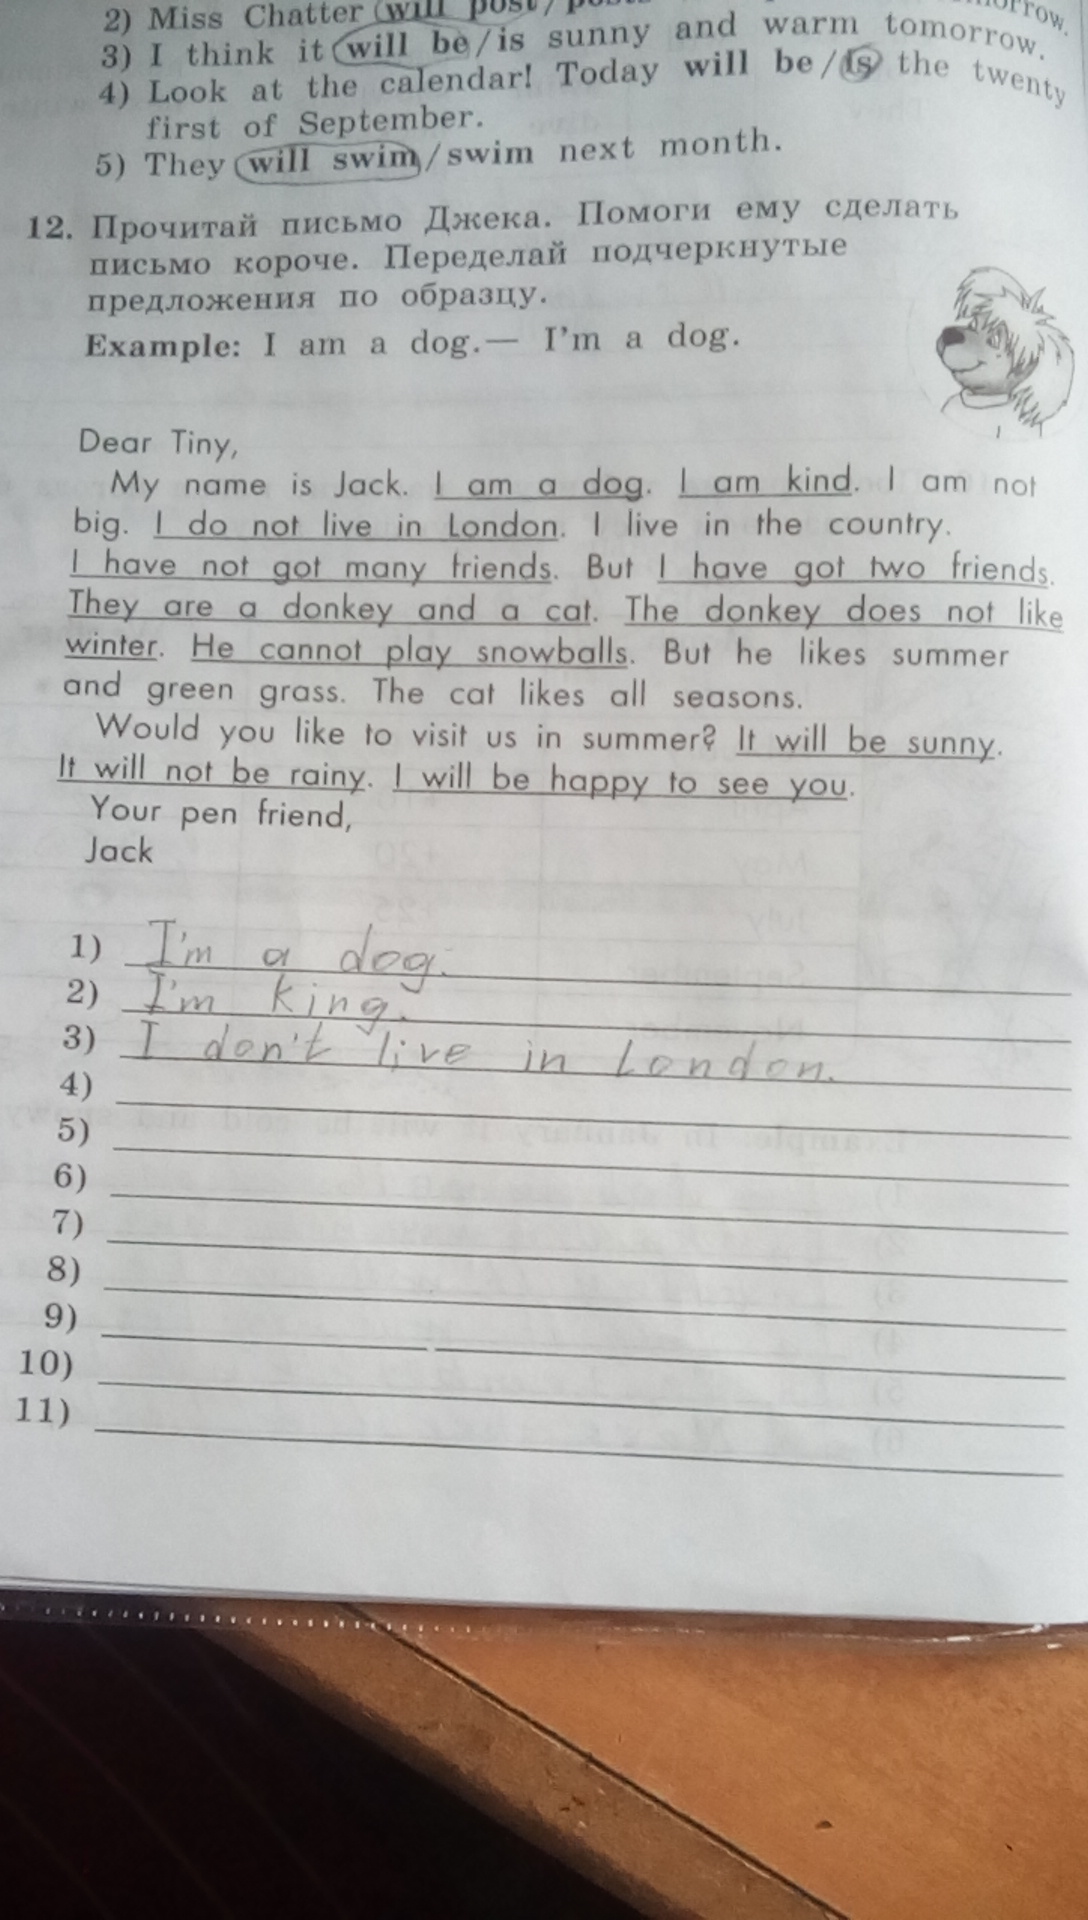 2) Miss Chatter will post/
3) I think it will be/is sunny and warm tomorrow.
4) Look at the calendar! Today will be/is the twenty
first of September.
5) They will swim/swim next month.
12. Прочитай письмо Джека. Помоги ему сделать
письмо короче. Переделай подчеркнутые
предложения по образцу.
Example: I am a dog.— I'm a dog.
Dear Tiny,
My name is Jack. I am a dog. I am kind. I am not
big. I do not live in London. I live in the country.
I have not got many friends. But I have got two friends.
They are a donkey and a cat. The donkey does not like
winter. He cannot play snowballs. But he likes summer
and green grass. The cat likes all seasons.
Would you like to visit us in summer? It will be sunny.
It will not be rainy. I will be happy to see you.
Your pen friend,
Jack
1) I'm a dog.
2) I'm king.
3) I don't live in London.
4)
5)
6)
7)
8)
9)
10)
11)